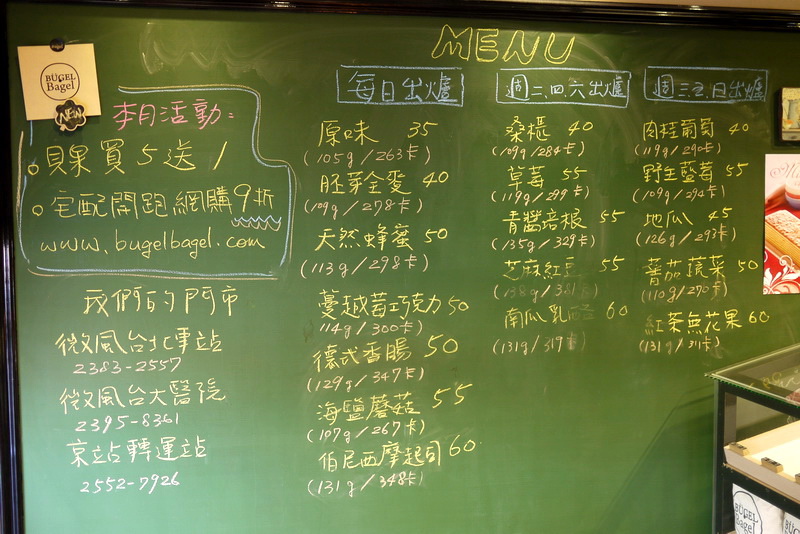 BÜGEL
Bagel
NEW
MENU
本月活動:
貝果買5送1
宅配開跑網購9折
www.bugelbagel.com
我們的門市
微風台北車站
2383-2557
微風台大醫院
2395-8361
京站轉運站
2552-7926
每日出爐
原味 35
(105g/263卡)
胚芽全麥 40
(109g/278卡)
天然蜂蜜 50
(113g/298卡)
蔓越莓巧克力 50
114g/300卡)
德式香腸 50
(129g/347卡)
海鹽蘑菇 55
(107g/267卡)
伯尼西摩起司 60
(131g/348卡)
週二.四.六出爐
桑椹 40
(109g/284卡)
草莓 55
(119g/299卡)
青醬培根 55
(135g/329卡)
芝麻紅豆 55
(138g/381卡)
南瓜乳酪 60
(131g/319卡)
週三.五.日出爐
肉桂葡萄 40
(119g/290卡)
野生藍莓 55
(109g/292卡)
地瓜 45
(126g/293卡)
蕃茄蔬菜 50
(110g/270卡)
紅茶無花果 60
(131g/311卡)
BÜGEL
Bagel